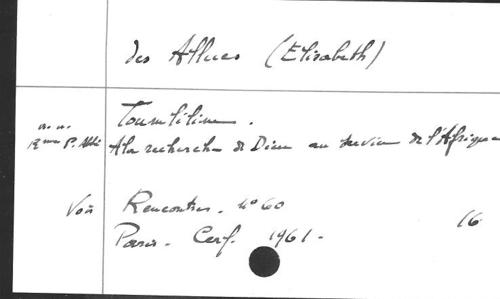 des Allues (Elisabeth)
Toumliline.
A la recherche de Dieu au service de l'Afrique
Voir Rencontres. N° 60
Paris. Cerf. 1961. 16